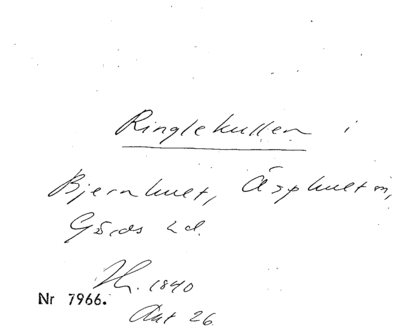 Ringlekullen i
Bjernhult, Äsphult sn,
Gärds hd.
Hr. 1840
Nr 7966.
Ant 26.